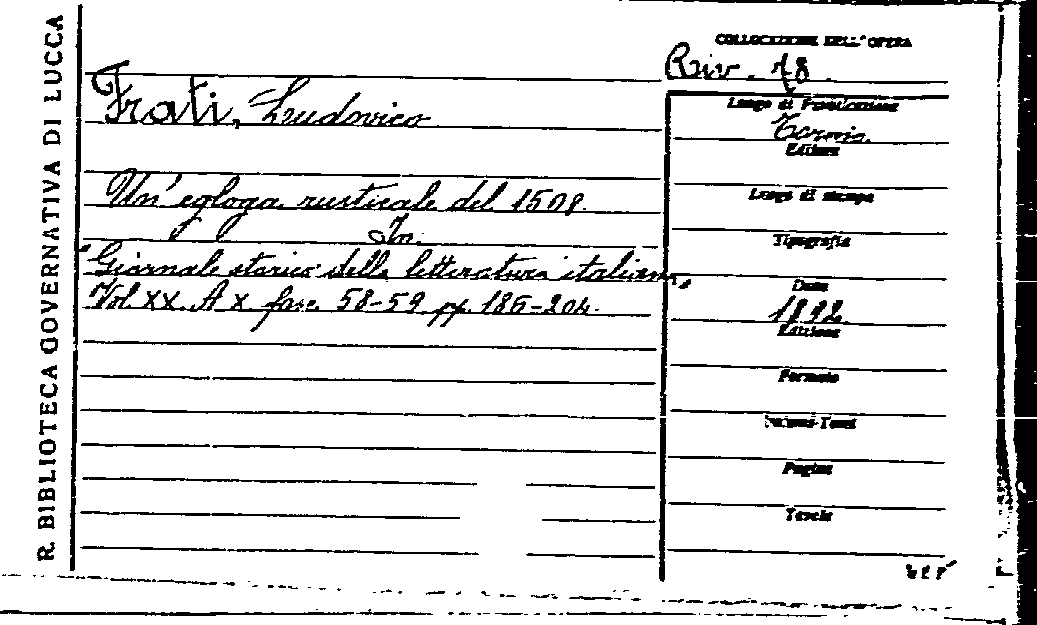 R. BIBLIOTECA GOVERNATIVA DI LUCCA
COLLOCAZIONE DELL'OPERA
Riv. 78.
Frati, Ludovico
Un' egloga rusticale del 1508.
In:
"Giornale storico della letteratura italiana,
Vol XX. A X fasc. 58-59. pp. 186-204.
Luogo di Pubblicazione
Torino.
Editore
Luogo di stampa
Tipografia
Data
1892.
Edizione
Formato
Volumi-Tomi
Pagine
Tavole